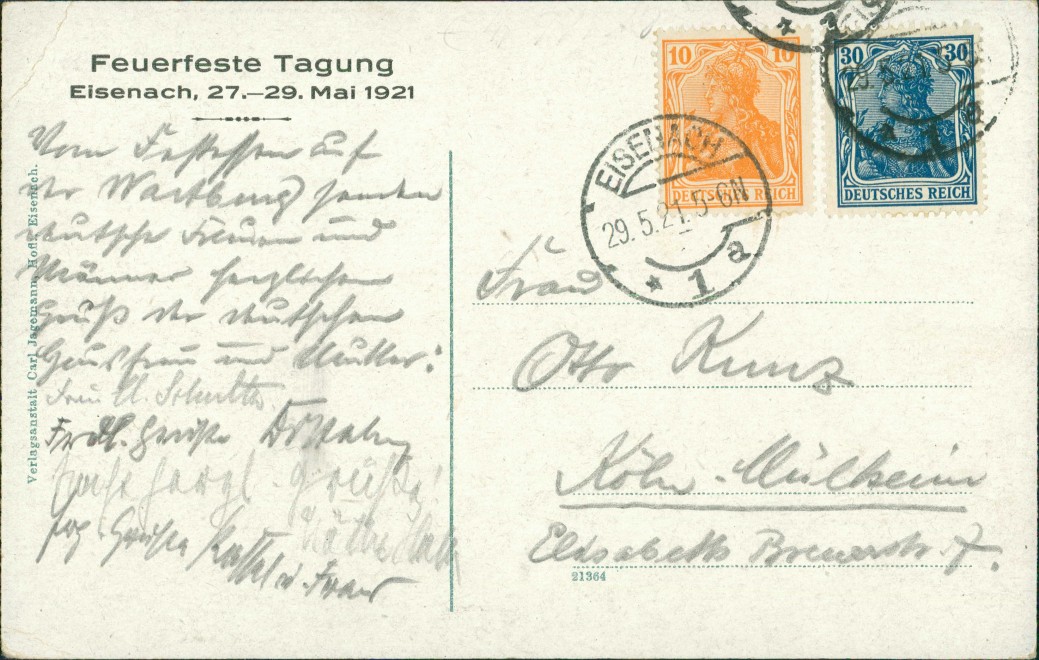 Feuerfeste Tagung
Eisenach, 27.—29. Mai 1921
Vom Festessen auf
der Wartburg senden
deutsche Frauen und
Männer herzlichen
Gruß der deutschen
Hausfrau und Mutter!
Frau
Frdl. Grüße
herzl. Grüße!
Grüße
u. Frau
Verlagsanstalt Carl Jagemann, Hofl. Eisenach.
10 10
DEUTSCHES REICH
30 30
DEUTSCHES REICH
EISENACH
29.5.21. 5-6N
* 1 a
Frau
Otto Kunz
Köln-Mülheim
Elisabeth Breuerstr. 7.
21364